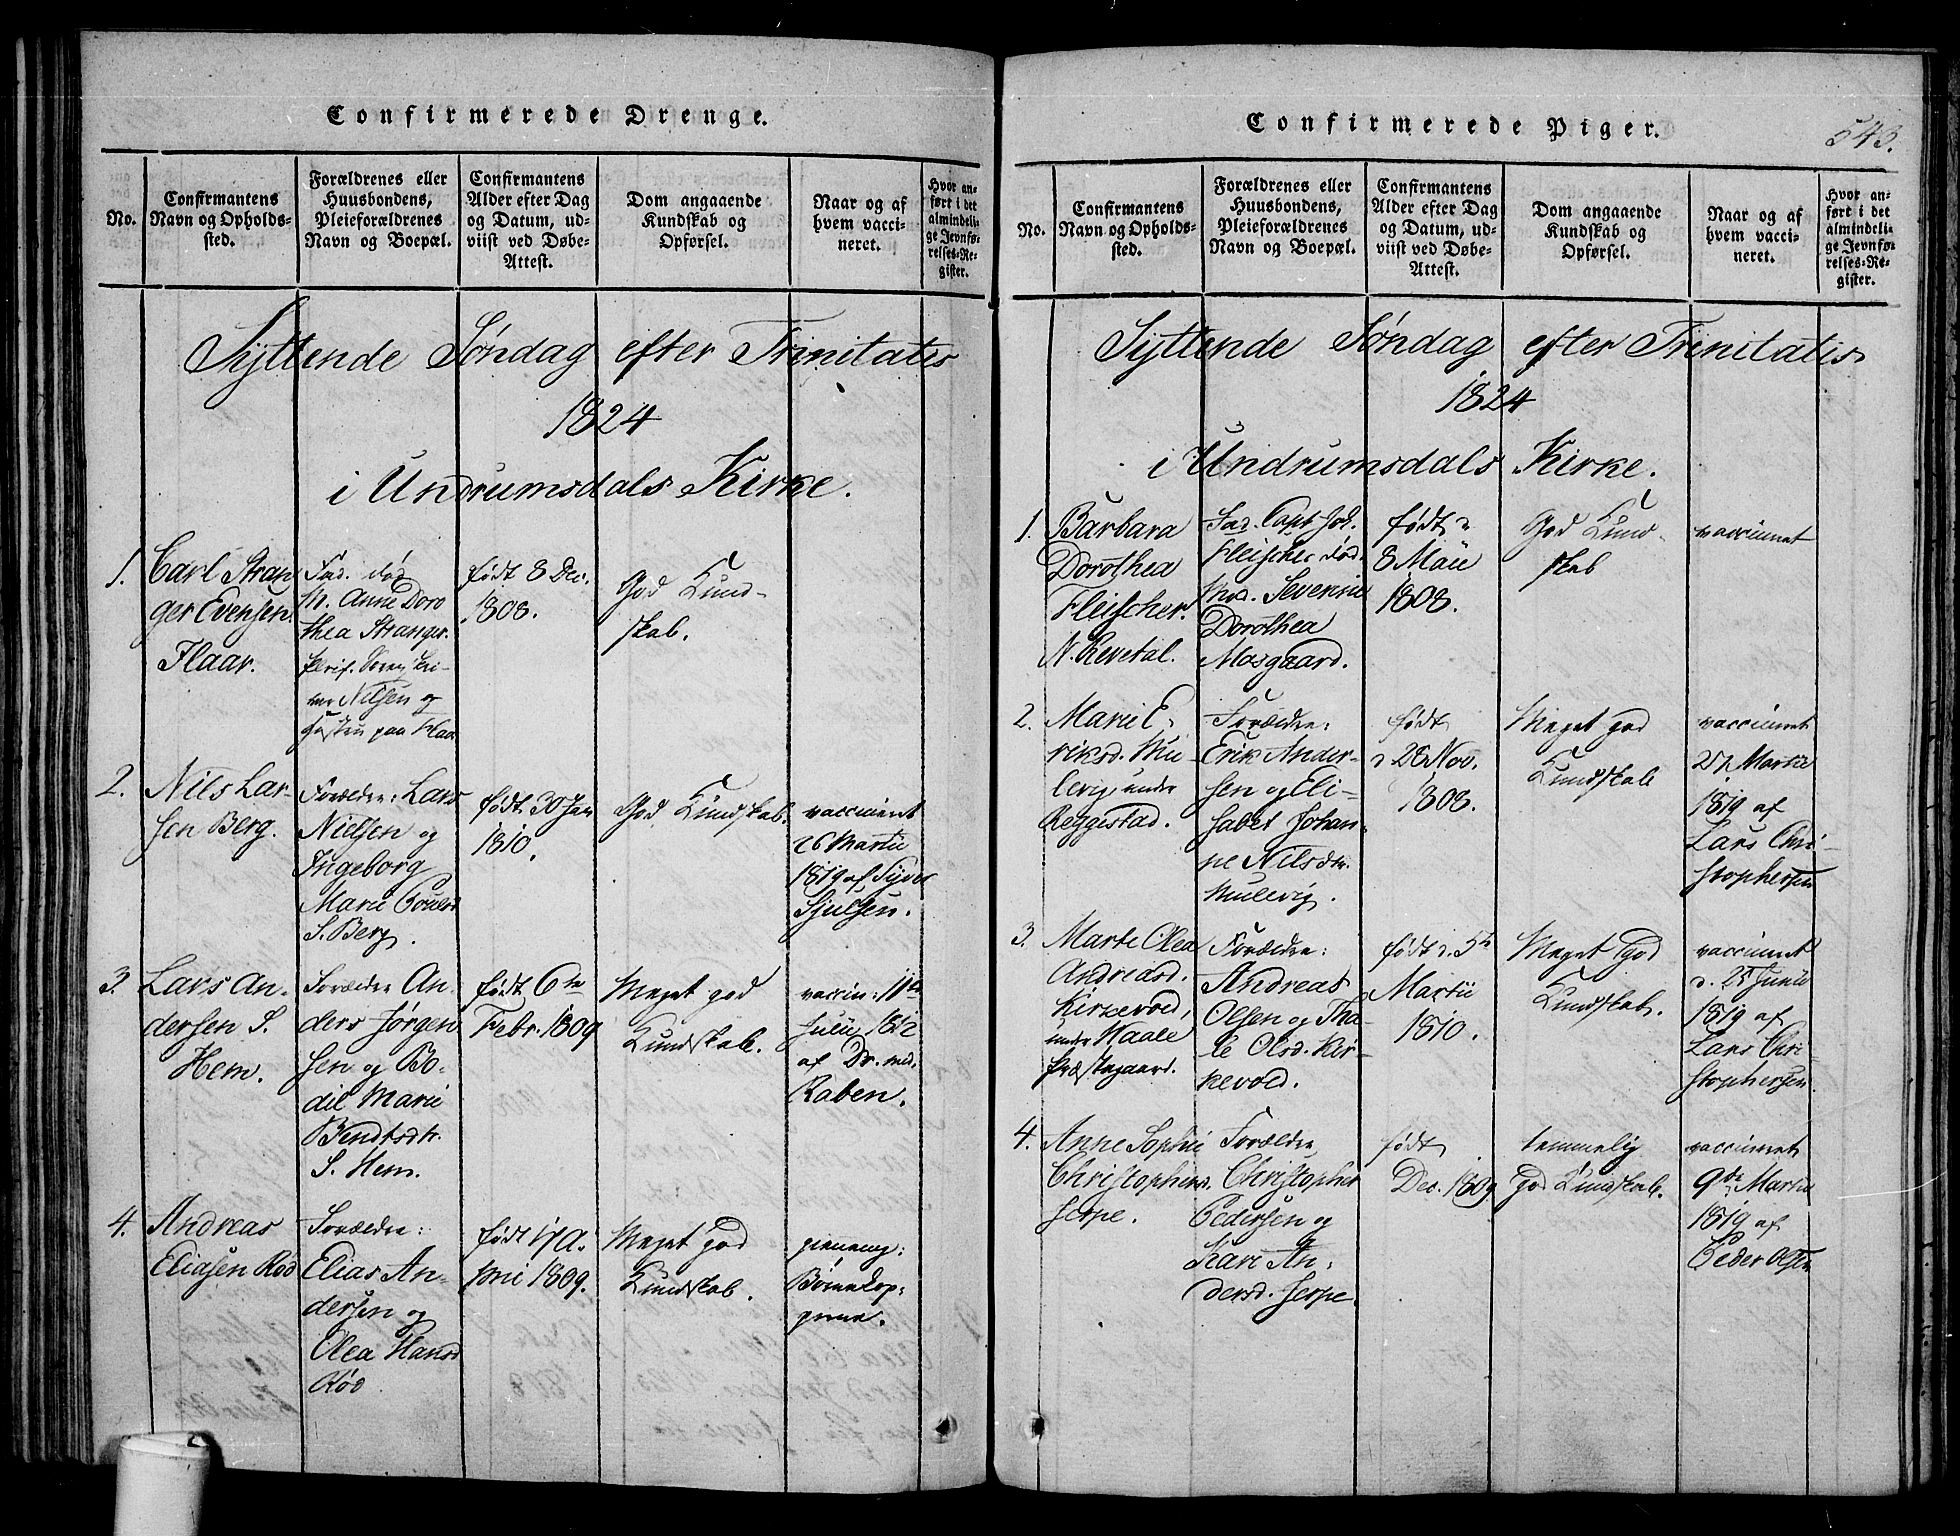 Confirmerede Drenge.
No.
Confirmantens
Navn og Opholds-
sted.
Forældrenes eller
Huusbondens,
Pleieforældrenes
Navn og Boepæl.
Confirmantens
Alder efter Dag
og Datum, ud-
viist ved Døbe-
Attest.
Dom angaaende
Kundskab og
Opførsel.
Naar og af
hvem vacci-
neret.
Hvor an-
ført i det
almindeli-
ge Jevnfø-
relses-Re-
gister.
Syttende Søndag efter Trinitatis
1824
i Undrumsdals Kirke.
1.
Carl Stran
ger Evensen
Flaar.
Fad. død
M. Anne Doro
thea Stranger.
Nilsen og
paa Flaa
født 8 Dec.
1808.
God Kund-
skab.
2.
Nils Lar-
sen Berg.
Forældre: Lars
Nielsen og
Ingeborg
Marie Poulsd
S. Berg.
født 30 Jan
1810.
God Kundskab.
vaccineret
26 Martii
1819 af Syver
Sjulsen.
3.
Lars An-
dersen S.
Hem.
Forældre An-
ders Jørgen
sen og Bo-
dil Marie
Bendtsdtr.
S. Hem.
født 6te
Febr. 1809
Meget god
Kundskab.
vaccin: 11te
Julii 1812
af Dr. med.
Raben.
4.
Andreas
Eliasen Rød
Forældre:
Elias An-
dersen og
Olea Hansd
Rød.
født 17 A-
pril 1809.
Meget god
Kundskab.
gienneng:
Børnekop-
perne.
Confirmerede Piger.
543.
No.
Confirmantens
Navn og Opholds-
sted.
Forældrenes eller
Huusbondens,
Pleieforældrenes
Navn og Boepæl.
Confirmantens
Alder efter Dag
og Datum, ud-
viist ved Døbe-
Attest.
Dom angaaende
Kundskab og
Opførsel.
Naar og af
hvem vacci-
neret.
Hvor an-
ført i det
almindeli-
ge Jevnfø-
relses-Re-
gister.
Syttende Søndag efter Trinitatis
1824
i Undrumsdals Kirke.
1.
Barbara
Dorothea
Fleischer.
N. Revetal.
Fad. Capt. Joh.
Fleischer død.
Mod. Severine
Dorothea
Mosgaard.
født d
8 Maii
1808.
God Kund-
skab
vaccineret
2.
Marie E-
riksd. Mu-
levig, under
Reggestad.
Forældre:
Erik Ander-
sen og Eli-
sabet Johan-
ne Nilsdtr.
Mullevig.
født
d 28 Nov.
1808.
Meget god
Kundskab
vaccineret
27 Martii
1819 af
Lars Chri-
stophersen
3.
Marte Olea
Andreasd.
Kirkevold,
under Waale
Præstegaard.
Forældre:
Andreas
Olsen og Tha-
le Olsd. Kir-
kevold.
født d. 5te
Martii
1810.
Meget god
Kundskab.
vaccineret
d. 25 Junii
1819 af
Lars Chri-
stophersen
4.
Anne Sophie
Christophersd.
Jerpe.
Forældre
Christopher
Pedersen og
Kari An-
dersd. Jerpe.
født
Dec. 1809
temmelig
god Kundskab.
vaccineret
9de Martii
1819 af
Peder Olsen